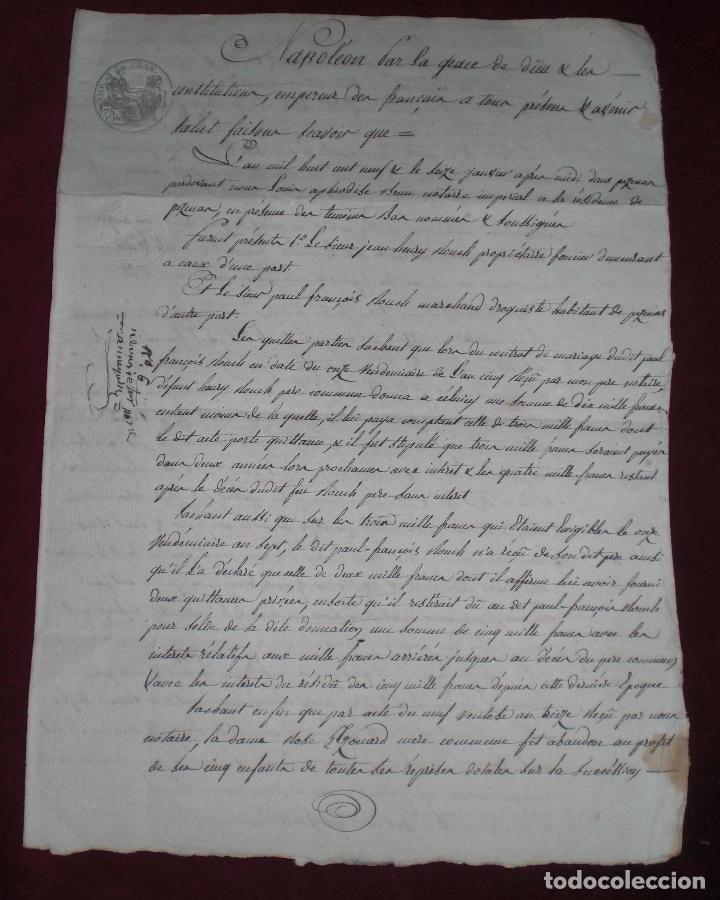 Napoléon par la grace de dieu & les
constitutions, empereur des français a tous présens & avenir
salut faisons scavoir que =
L'an mil huit cent neuf & le seize janvier après midi dans pezenas
pardevant nous Louis aphrodise notaire impérial a la résidence de
pezenas, en présence des temoins bas nommés & soussignés
furent présents 1º Le sieur jean henry propriétaire foncier demeurant
a caux d'une part.
Et le sieur paul françois marchand droguiste habitant de pezenas
d'autre part.
Lesquelles parties sachant que lors du contrat de mariage dudit paul
françois en date du onze Vendemiaire de L'an cinq reçu par mon pere notaire,
défunt henry pere commun donna a celuicy une somme de dix mille francs
entant moins de la quelle, il lui paya comptant celle de trois mille francs dont
le dit acte porte quittance, & il fut stipulé que trois mille francs seraient payés
dans deux années lors prochaines avec interet & les quatre mille francs restant
après le décès dudit feu pere sans interet
Sachant aussi que sur les trois mille francs qui Etaient Exigibles le onze
Vendemiaire an sept, le dit paul-françois n'a reçu de son dit pere ainsi
qu'il L'a déclaré que celle de deux mille francs dont il affirme lui avoir fourni
deux quittances privées, ensorte qu'il resterait dû au dit paul-françois
pour solde de la dite donnation une somme de cinq mille francs avec les
interets relatifs aux mille francs arriérés jusques au décès du pere commun
& avec les interets du résidu des cinq mille francs depuis cette derniere Epoque
Sachant enfin que par acte du neuf ventose an treize reçu par nous
notaire, la dame Rose mere commune fit abandon au profit
de ses cinq enfants de toutes ses reprises dotales sur la succession
Nº 6
todocoleccion.net